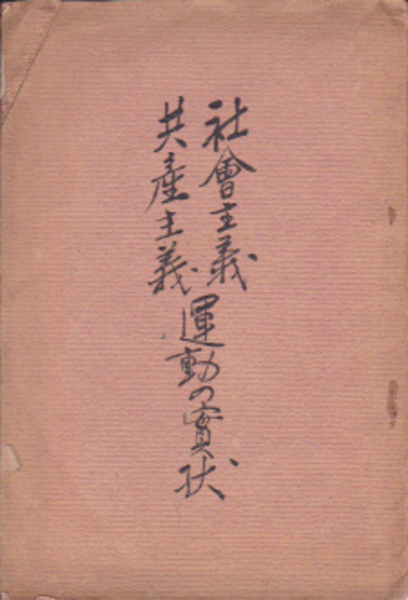 社會主義
共產主義
運動の實狀